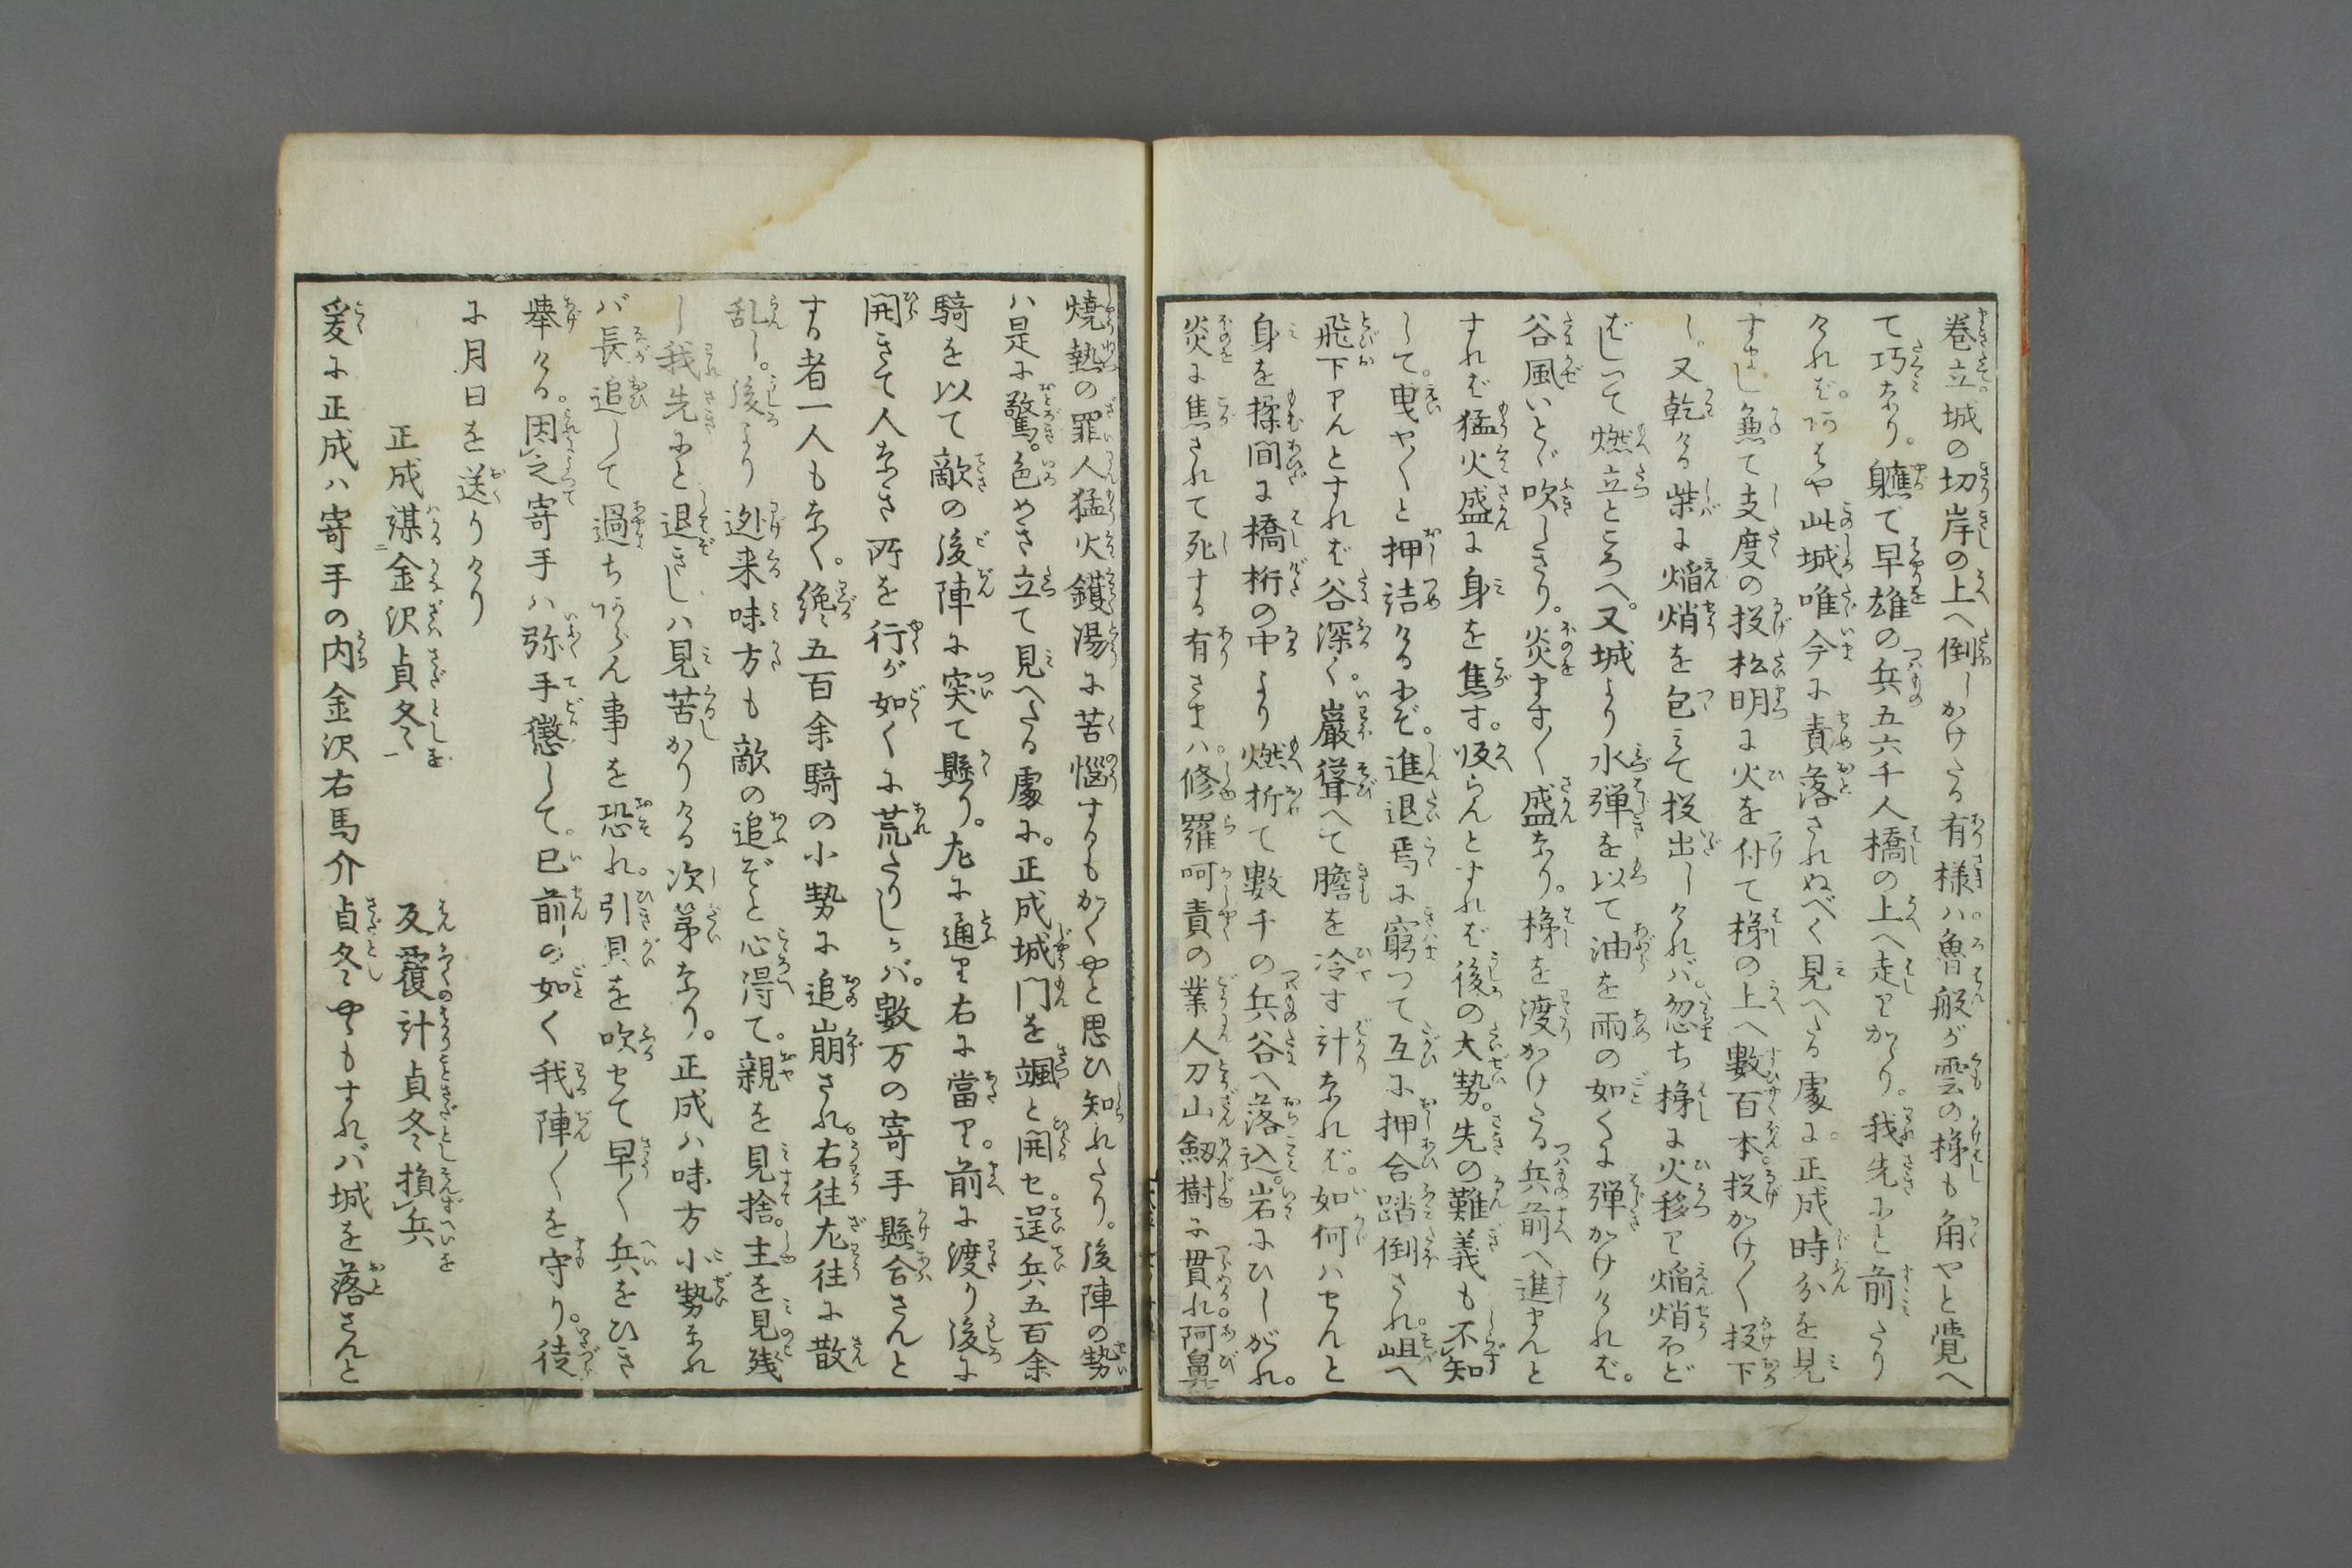 巻立城の切岸の上へ倒しかけたる有様ハ。魯般が雲の梯も角やと覚へ
て巧なり。軈て早雄の兵五六千人橋の上へ走りかゝり。我先にと前たり
ければ。あはや此城唯今に責落されぬべく見へたる処に。正成時分を見
すまし兼て支度の投松明に火を付て梯の上へ数百本。投かけ〱投下
し。又乾たる柴に焔焇を包こて投出しければ。忽ち梯に火移り焔焇ほど
ばしつて燃立ところへ。又城より水弾を以て油を雨の如くに弾かけければ。
谷風いとゞ吹しきり。炎ます〱盛なり。梯を渡かけたる兵前へ進まんと
すれば猛火盛に身を焦す。皈らんとすれば後の大勢。先の難義も不知
して。曳や〱と押詰けるにぞ。進退焉に窮つて互に押合踏倒され。岨へ
飛下りんとすれば谷深く。巌聳へて膽を冷す計なれば。如何ハせんと
身を揉間に橋桁の中より燃折て数千の兵谷へ落込。岩にひしがれ。
炎に焦されて死する有さまハ。修羅呵責の業人刀山劔樹に貫れ。阿鼻
焼熱の罪人猛火鑊湯に苦悩するもかくやと思ひ知れたり。後陣の勢
ハ是に驚。色めき立て見へたる処に。正成城門を颯と開セ。逞兵五百余
騎を以て敵の後陣に突て懸り。左に通り右に當り。前に渡り後に
開きて人なき所を行が如くに荒たりしかバ。数万の寄手懸合さんと
する者一人もなく。纔五百余騎の小勢に追崩され。右往左往に散
乱し。後より迯来味方も敵の追ぞと心得て。親を見捨。主を見残
し我先にと退きしハ見苦かりける次第なり。正成ハ味方小勢なれ
バ長追して過ちあらん事を恐れ。引貝を吹せて早〱兵をひき
挙ける。因之寄手ハ弥手懲して。已前の如く我陣〱を守り。徒
に月日を送りけり
正成謀金沢貞冬　　反覆計貞冬損兵
爰に正成ハ寄手の内金沢右馬介貞冬やゝもすれバ城を落さんと